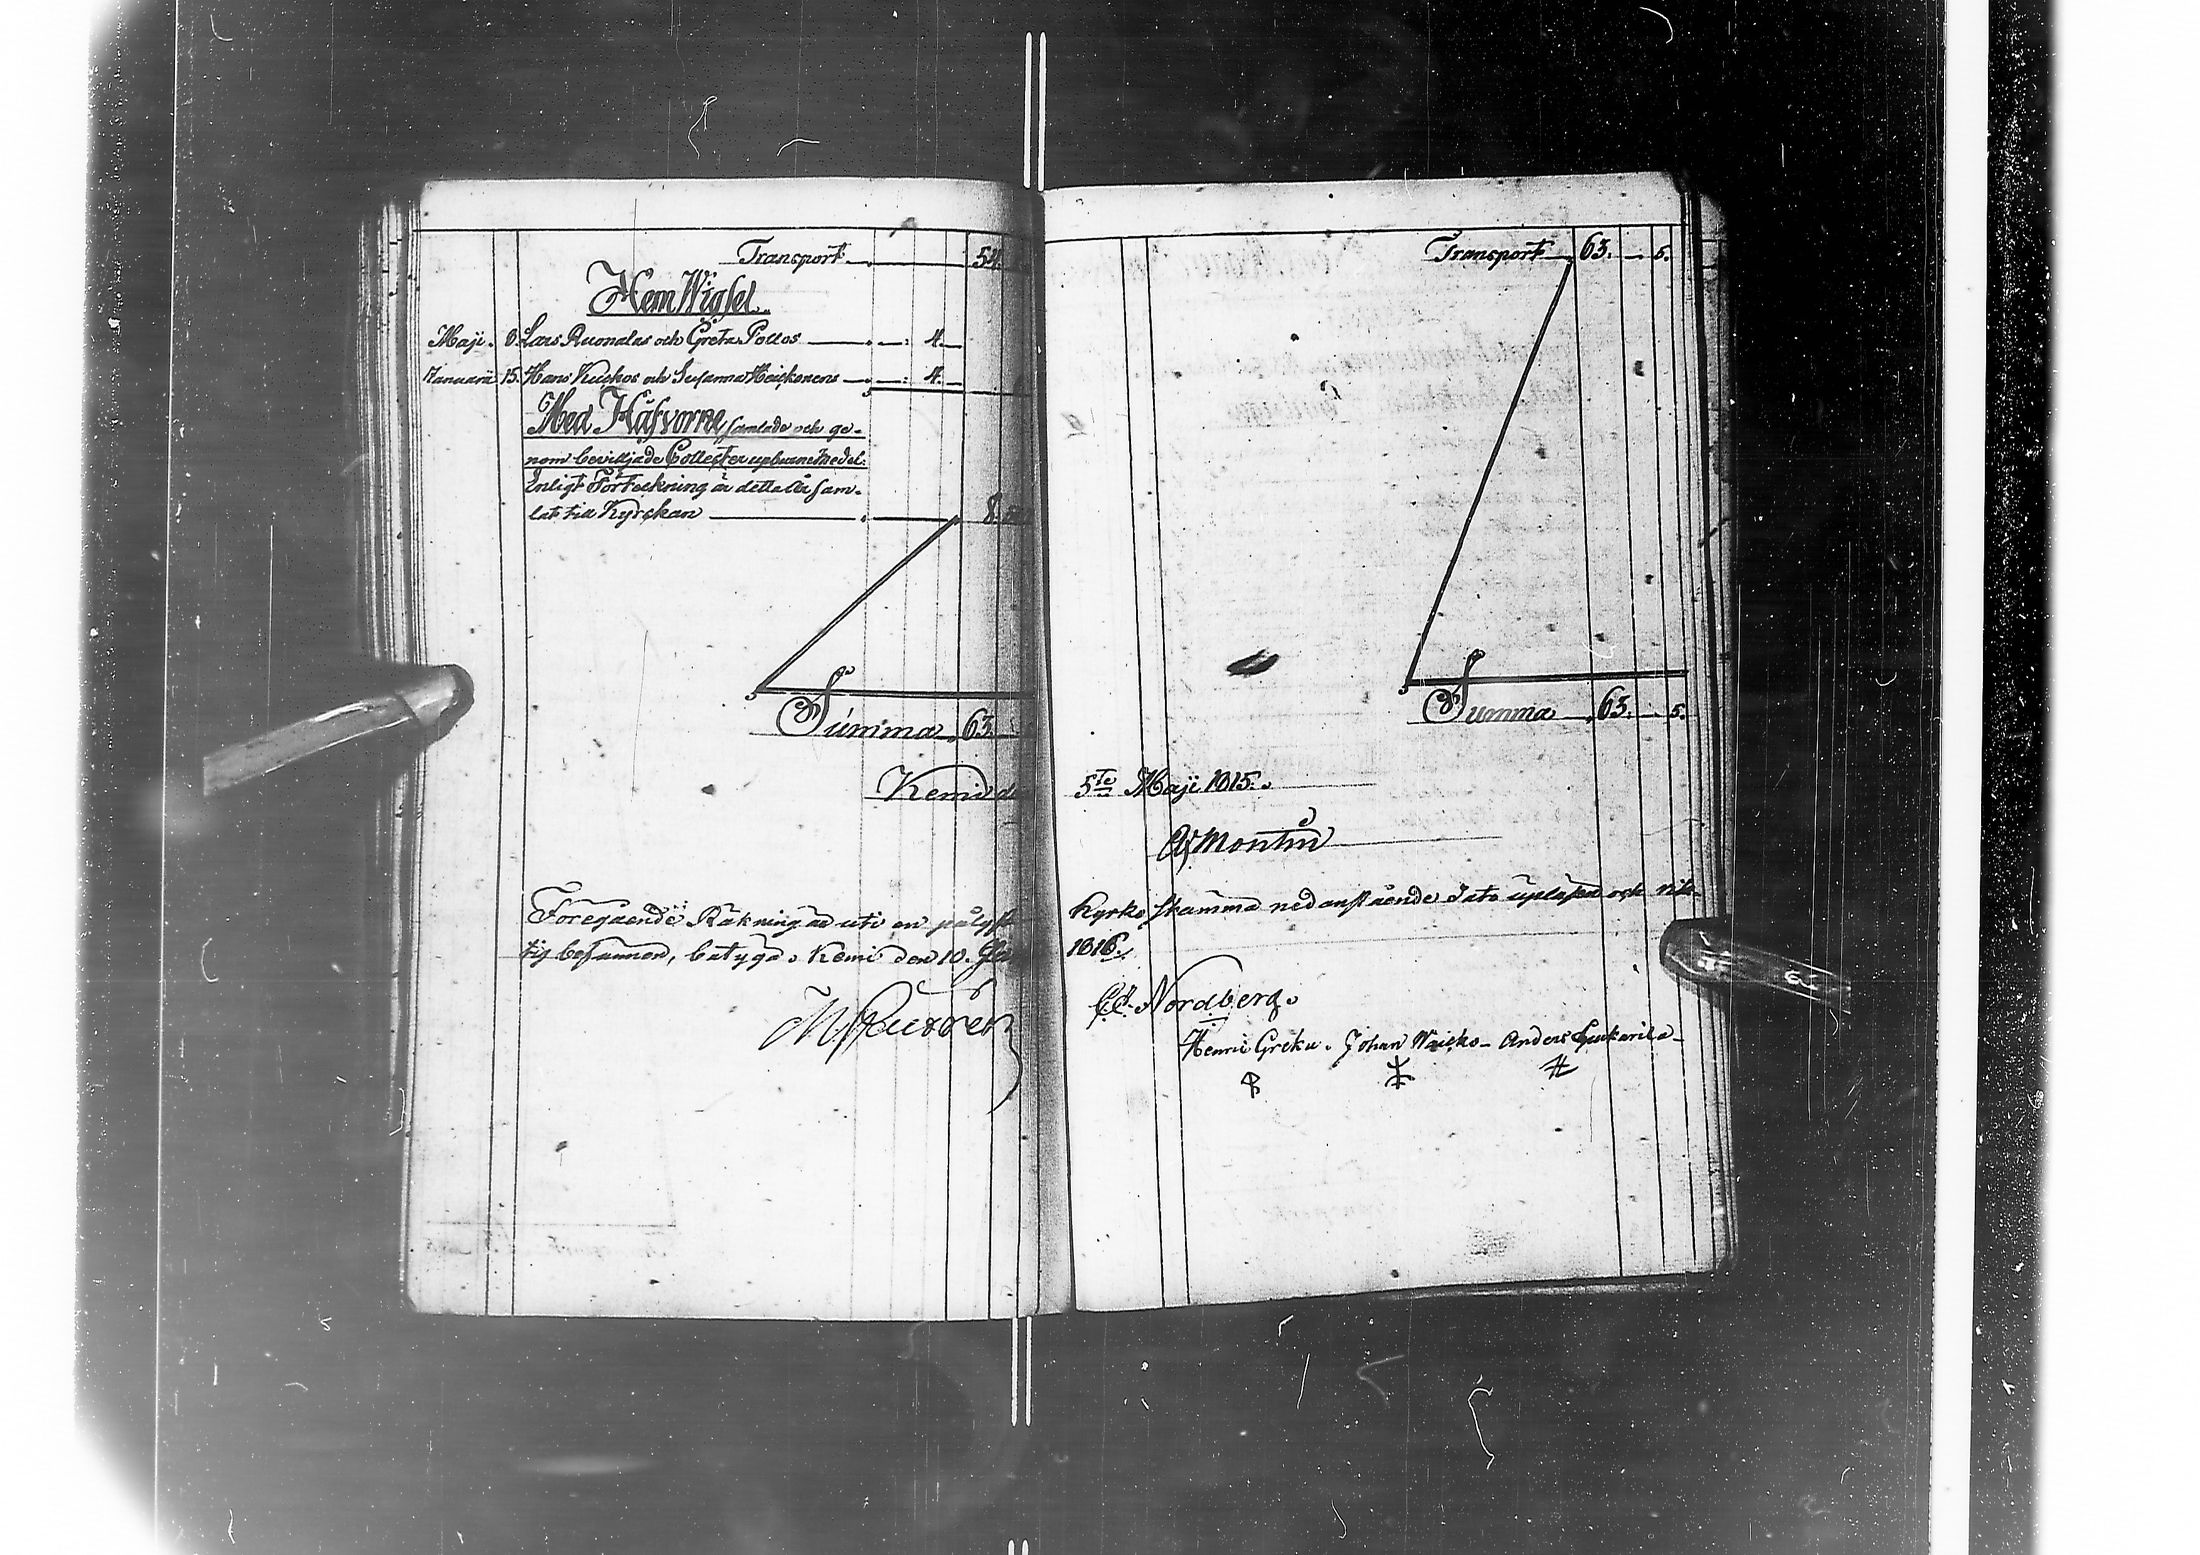 Transport 54.
Hem Wigsel.
Maji. 8. Lars Ruonalas och Greta Pollos 4.
Januarii 15. Hans Kuckos och Susanna Heickonens 4.
Med Håfvorne samlade och ge-
nom beviljade Collecter upburne medel.
Enligt Förteckning är detta År sam-
lat till Kyrckan 8.
Summa 63.
Kemi d
Föregående Räkning är uti en pålyst
tig befunnen, betyga. Kemi den 10.
Transport 63. 5.
Summa 63. 5.
5te Maji 1815.
Montin
Kyrko stämma nedanstående dato upläsen och rik-
1816.
Nordberg.
Henric Greku. Johan Waicko- Anders